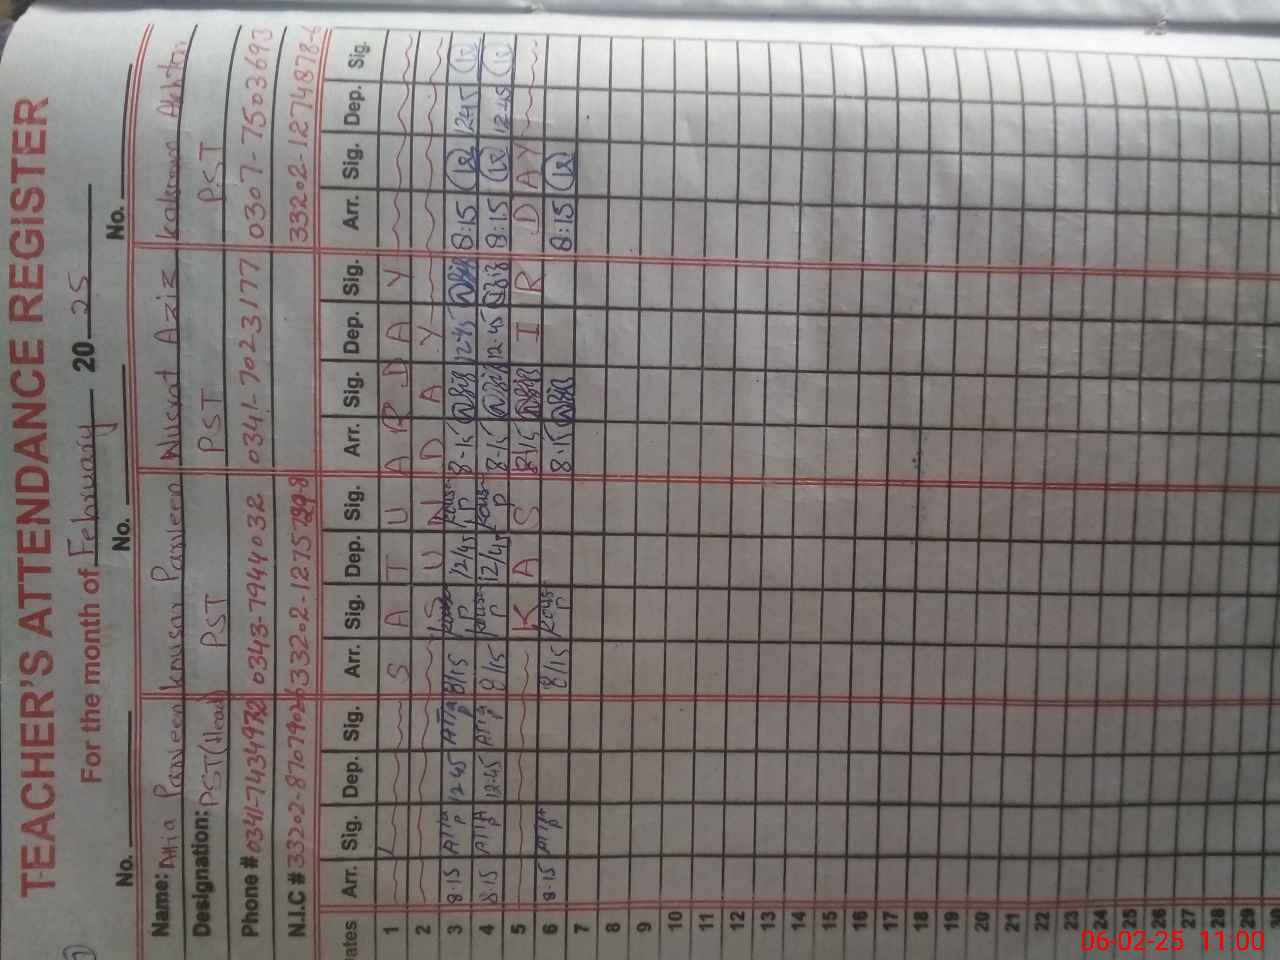 TEACHER'S ATTENDANCE REGISTER
For the month of February 20 25
No. No. No. No.
Name: Atia Parveen Kousar Parveen Nusrat Aziz Kakman Akhtar
Designation: PST (Head) PST PST PST
Phone # 0341-7434972 0343-7944032 0341-7023177 0307-7503693
N.I.C # 33202-8707902-6 33202-1275799-8 33202-1274878-6
Dates Arr. Sig. Dep. Sig. Arr. Sig. Dep. Sig. Arr. Sig. Dep. Sig. Arr. Sig. Dep. Sig.
1 S A T U A R D A Y
2 S U N D A Y
3 8-15 Atia P 12-45 Atia P 8/15 Kousar P 12/45 Kousar P 8-15 12-45 8:15 12:45
4 8-15 Atia P 12-45 Atia P 8/15 Kousar P 12/45 Kousar P 8-15 12-45 8:15 12-45
5 K A S 8/15 I R D A Y
6 8-15 Atia P 8/15 Kous P 8-15 8:15
7
8
9
10
11
12
13
14
15
16
17
18
19
20
21
22
23
24
25
26
27
28
29
30
06-02-25 11:00